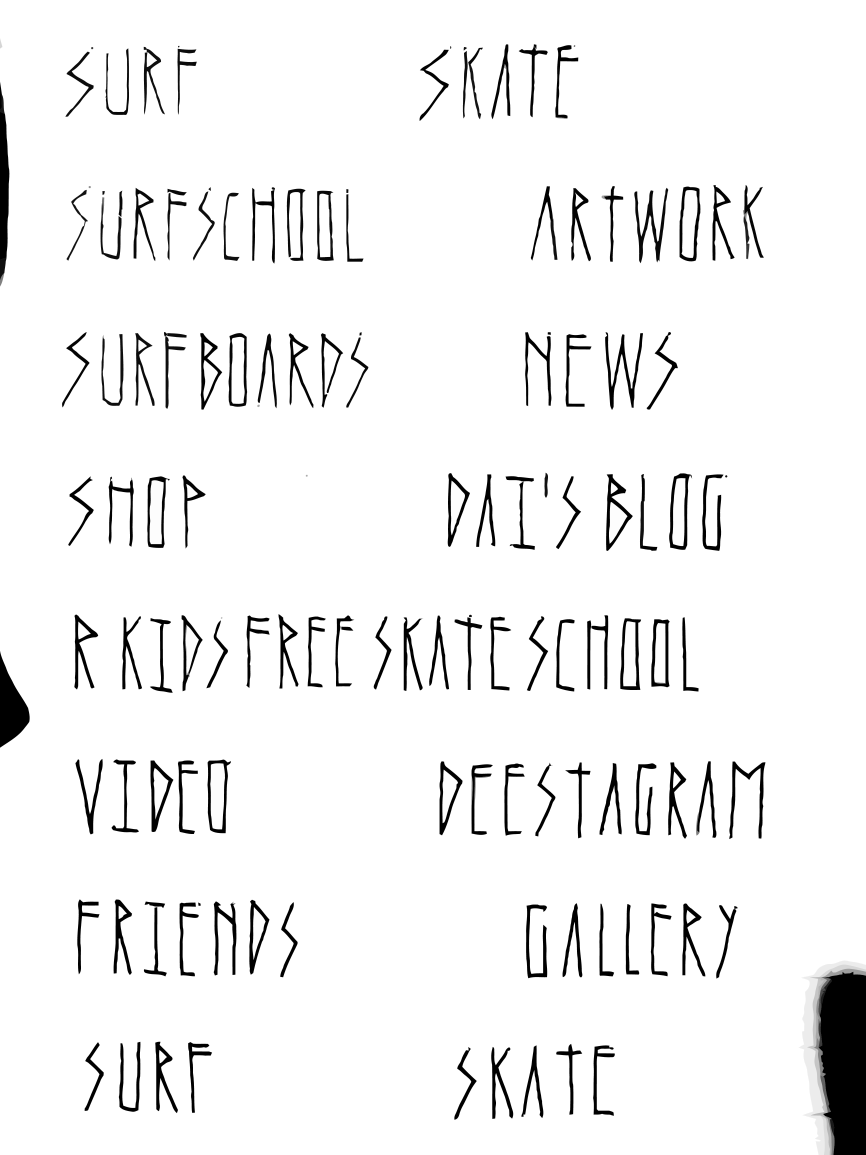 SURF SKATE
SURFSCHOOL ARTWORK
SURFBOARDS NEWS
SHOP DAI'S BLOG
R KIDS FREE SKATE SCHOOL
VIDEO DEESTAGRAM
FRIENDS GALLERY
SURF SKATE